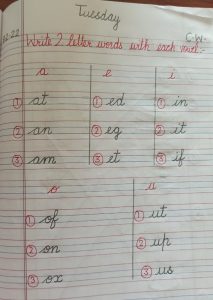 Tuesday
C.W.
Write 2 letter words with each
a e i
① at ① ed ① in
② an ② eg ② it
③ am ③ et ③ if
o u
① of ① ut
② on ② up
③ ox ③ us